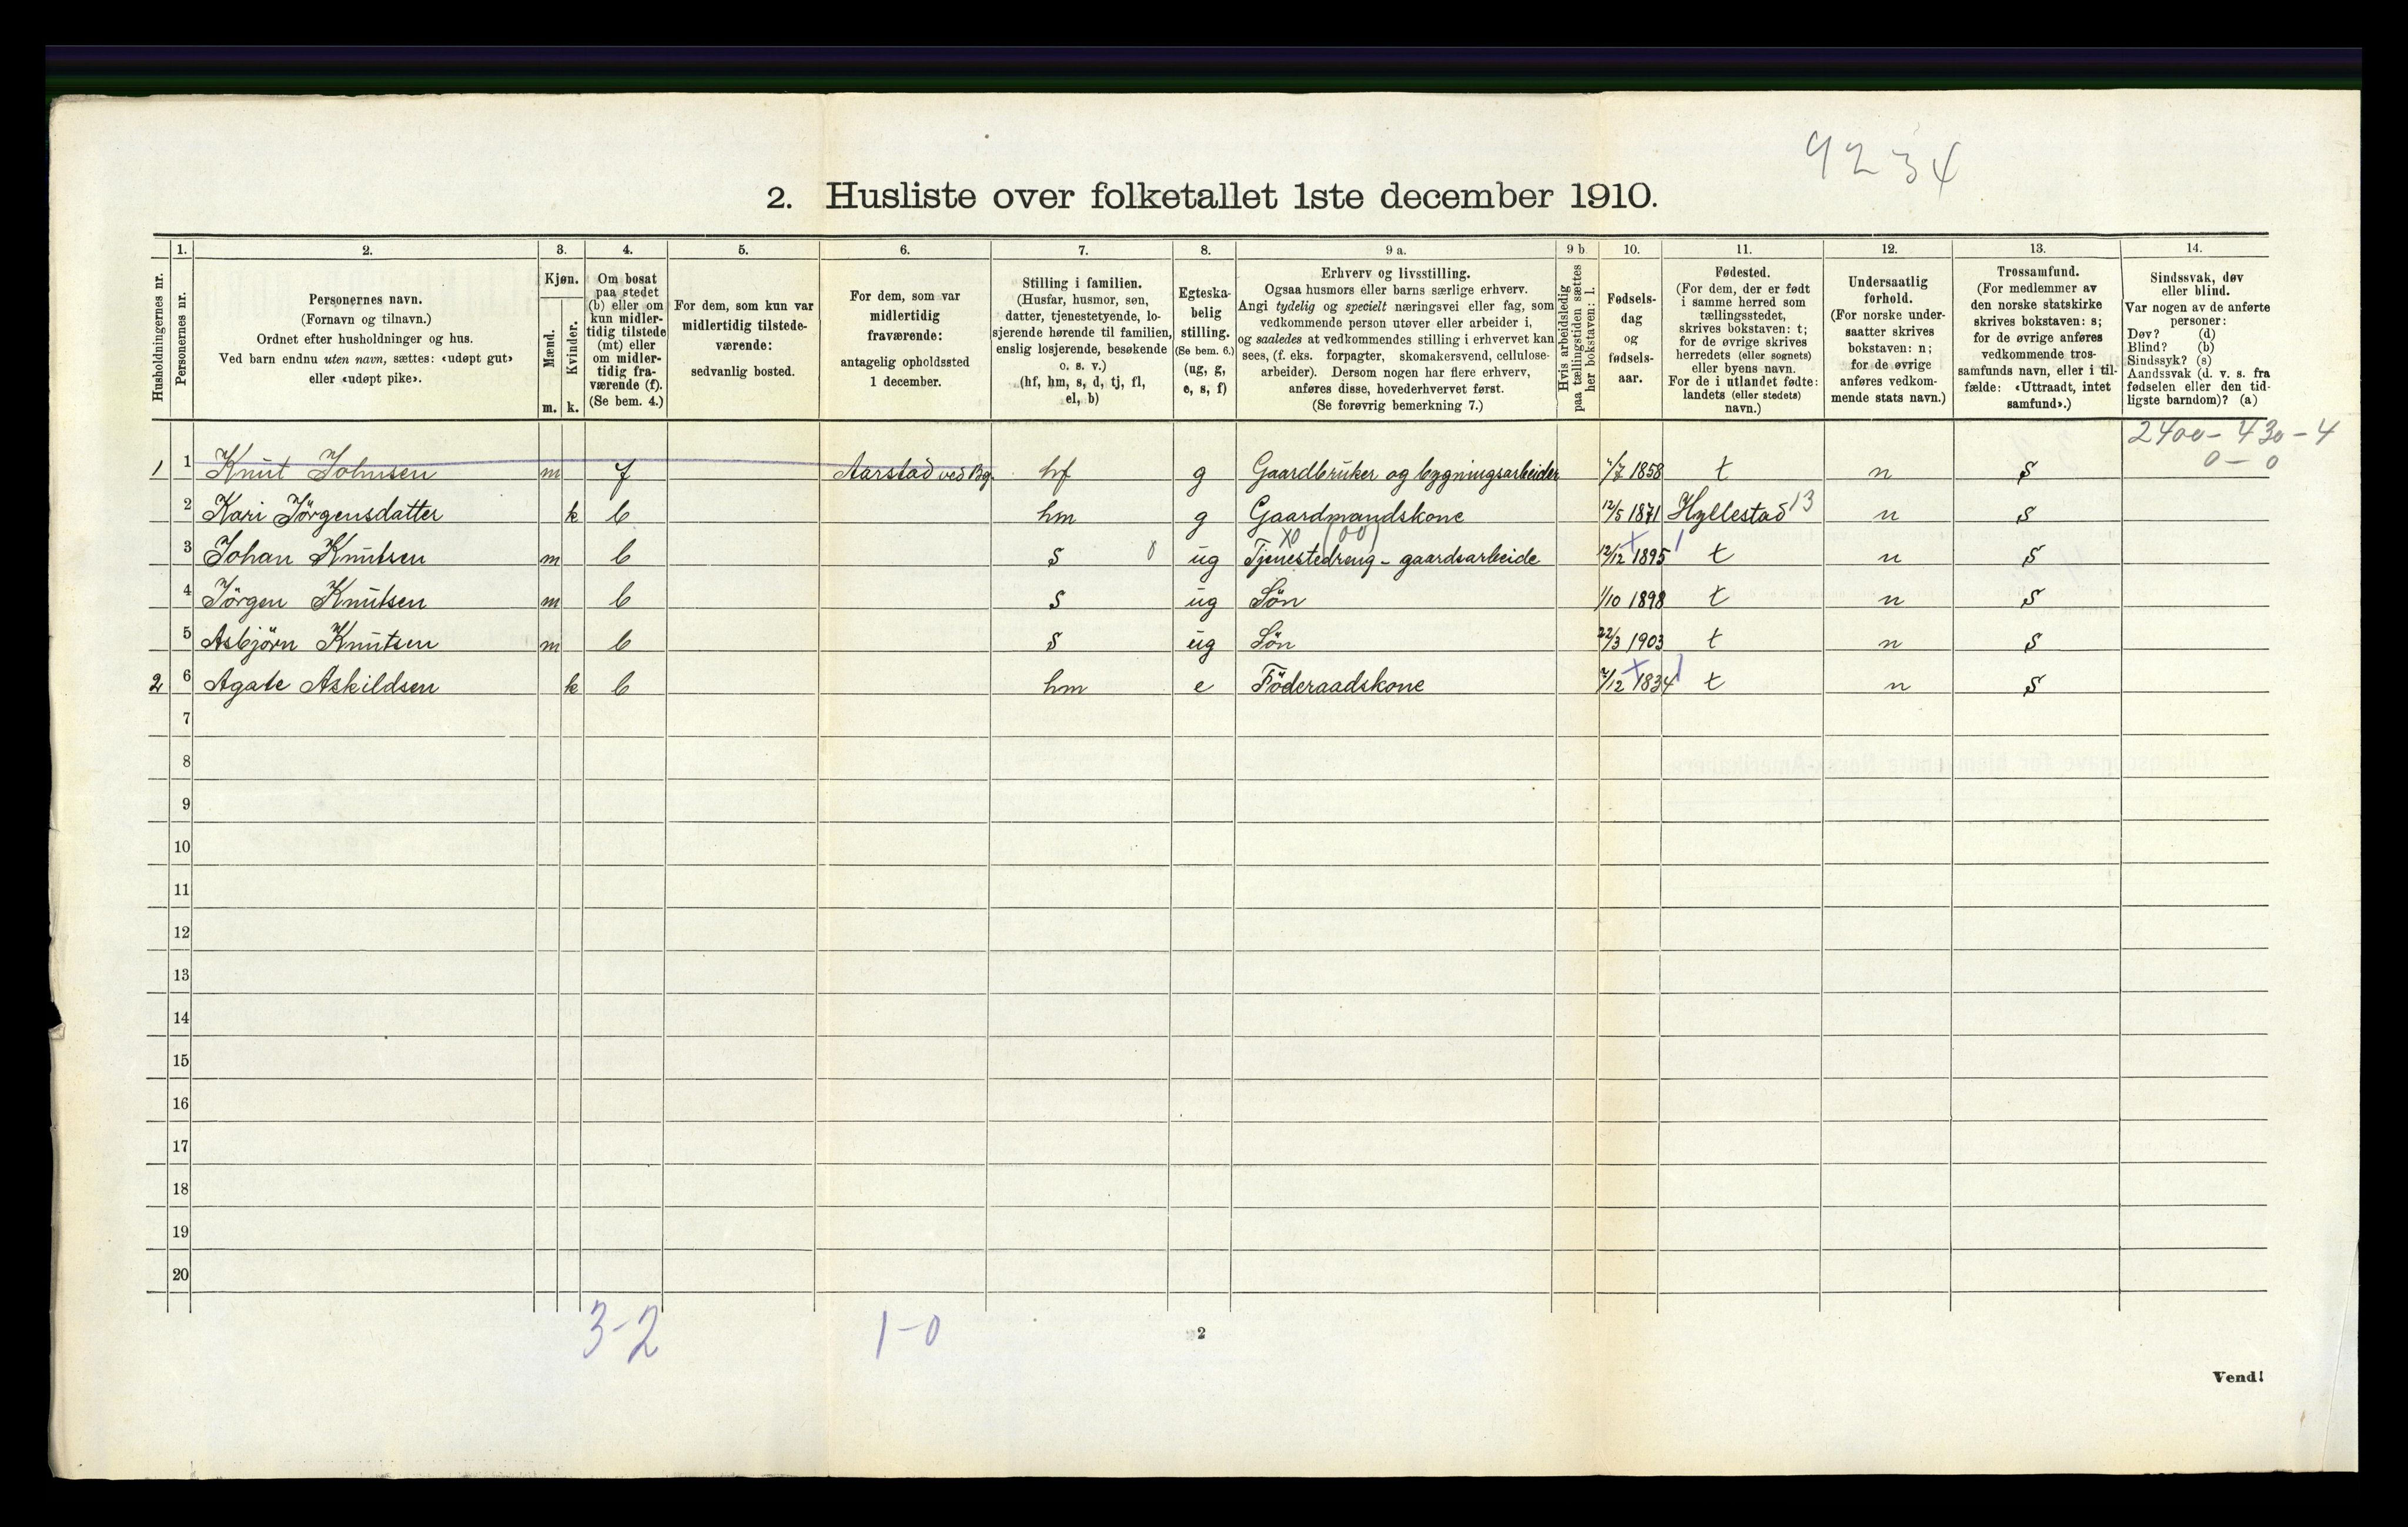 9234
2. Husliste over folketallet 1ste december 1910.
Husholdningernes nr. | 1. Personernes nr. | 2. Personernes navn. (Fornavn og tilnavn.) Ordnet efter husholdninger og hus. Ved barn endnu uten navn, sættes: «udøpt gut» eller «udøpt pike». | 3. Kjøn. Mænd. m. Kvinder. k. | 4. Om bosat paa stedet (b) eller om kun midlertidig tilstede (mt) eller om midlertidig fraværende (f). (Se bem. 4.) | 5. For dem, som kun var midlertidig tilstedeværende: sedvanlig bosted. | 6. For dem, som var midlertidig fraværende: antagelig opholdssted 1 december. | 7. Stilling i familien. (Husfar, husmor, søn, datter, tjenestetyende, losjerende hørende til familien, enslig losjerende, besøkende o. s. v.) (hf, hm, s, d, tj, fl, el, b) | 8. Egteskabelig stilling. (Se bem. 6.) (ug, g, e, s, f) | 9 a. Erhverv og livsstilling. Ogsaa husmors eller barns særlige erhverv. Angi tydelig og specielt næringsvei eller fag, som vedkommende person utøver eller arbeider i, og saaledes at vedkommendes stilling i erhvervet kan sees, (f. eks. forpagter, skomakersvend, cellulosearbeider). Dersom nogen har flere erhverv, anføres disse, hovederhvervet først. (Se forøvrig bemerkning 7.) | 9 b Hvis arbeidsledig paa tællingstiden sættes her bokstaven: l. | 10. Fødselsdag og fødselsaar. | 11. Fødested. (For dem, der er født i samme herred som tællingsstedet, skrives bokstaven: t; for de øvrige skrives herredets (eller sognets) eller byens navn. For de i utlandet fødte: landets (eller stedets) navn.) | 12. Undersaatlig forhold. (For norske undersaatter skrives bokstaven: n; for de øvrige anføres vedkommende stats navn.) | 13. Trossamfund. (For medlemmer av den norske statskirke skrives bokstaven: s; for de øvrige anføres vedkommende trossamfunds navn, eller i tilfælde: «Uttraadt, intet samfund».) | 14. Sindssvak, døv eller blind. Var nogen av de anførte personer: Døv? (d) Blind? (b) Sindssyk? (s) Aandssvak (d. v. s. fra fødselen eller den tidligste barndom)? (a)
2400 - 430 - 4
0 - 0
1 1 Knut Johnsen m f Aarstad ved Bg. hf g Gaardbruker og bygningsarbeider /7 1858 t n s
2 Kari Jörgensdatter k b hm g Gaardmandskone 12/5 1871 Hyllestad 13 n s
X0 (00)
3 Johan Knutsen m b s 0 ug Tjenestedreng - gaardsarbeide 12/12 1895 t n s
4 Jörgen Knutsen m b s ug Sön 1/10 1898 t n s
5 Asbjörn Knutsen m b s ug Sön 22/3 1903 t n s
2 6 Agate Askildsen k b hm e Föderaadskone /12 1834 t n s
7
8
9
10
11
12
13
14
15
16
17
18
19
20
3-2 1-0
2
Vend!